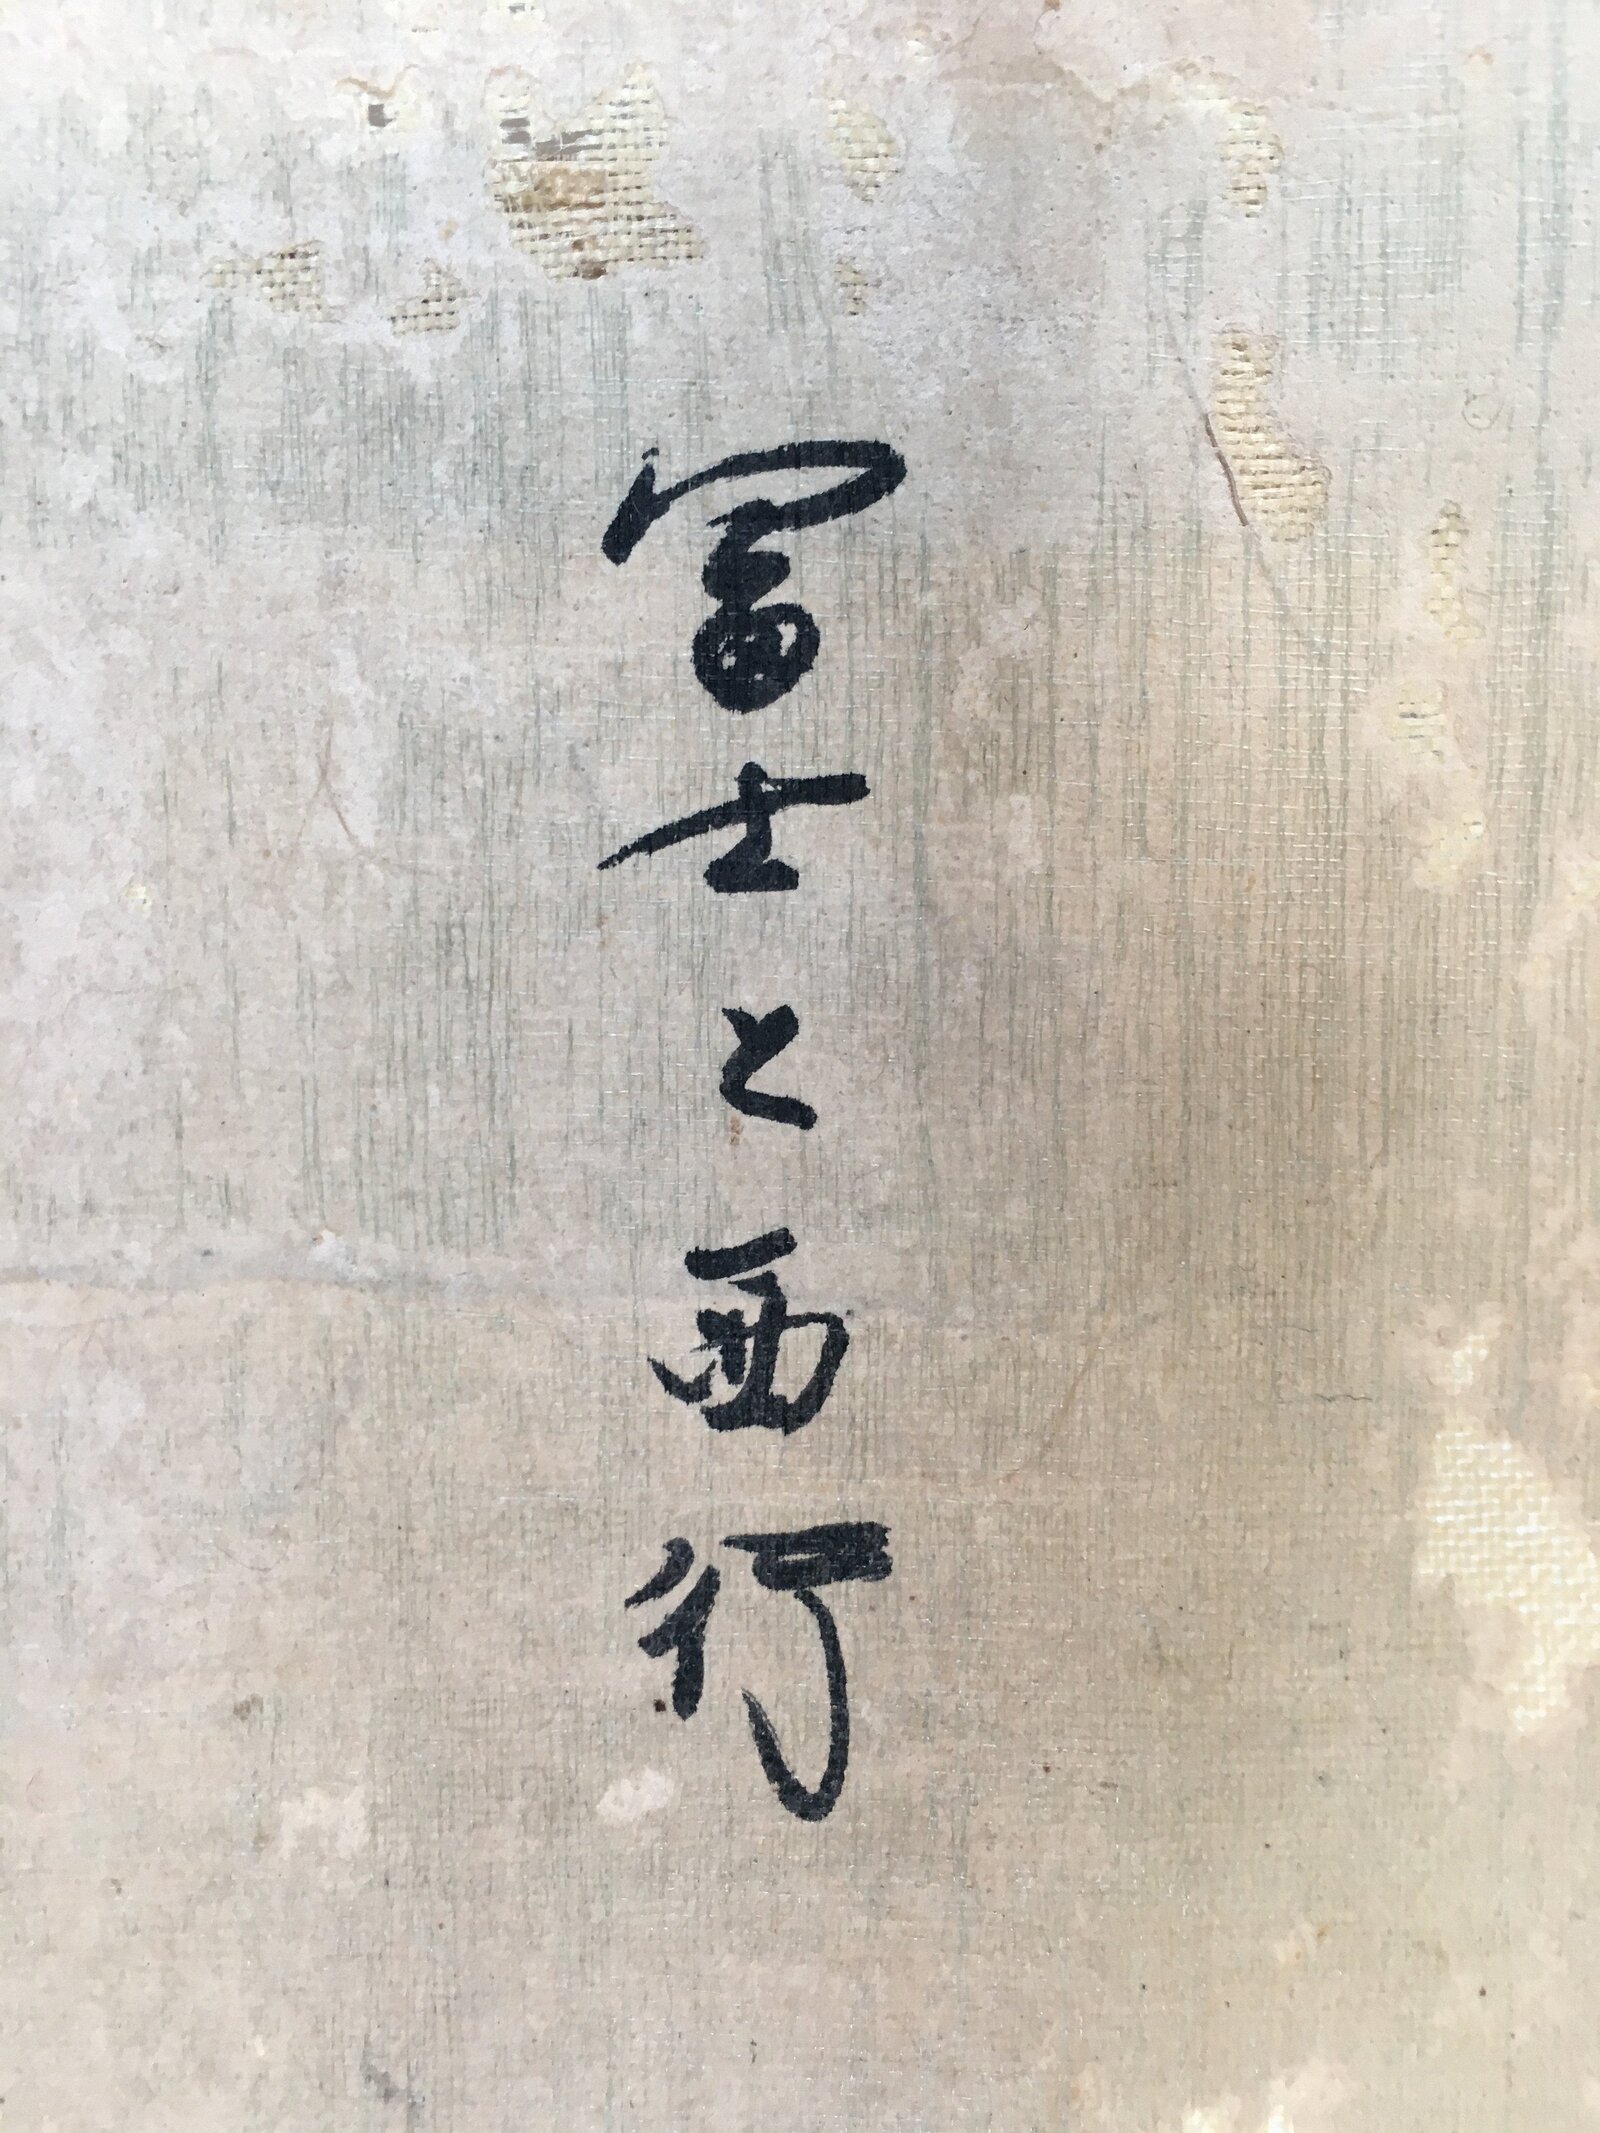 冨士と西行